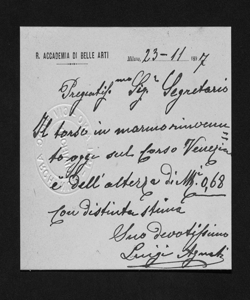 R. ACCADEMIA DI BELLE ARTI
Milano, 23-11 1917
Pregiatiss.mo Sigr Segretario
Il torso in marmo rinvenu
to oggi sul Corso Venezia
è dell'altezza di M. 0,68
Con distinta stima
Suo devotissimo
Luigi